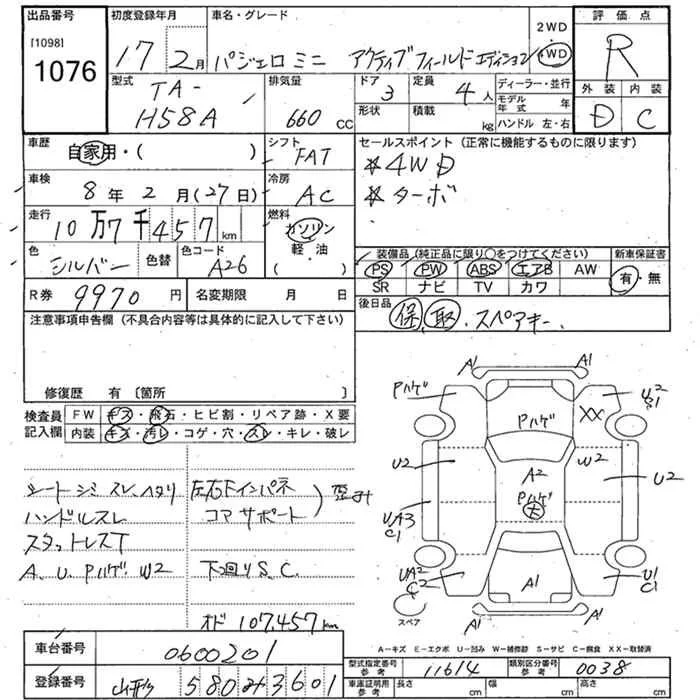 出品番号 初度登録年月 車名・グレード 2WD 評価点
[1098] 1076 17年 2月 パジェロミニ アクティブフィールドエディション 4WD R
型式 排気量 ドア 定員 ディーラー・並行 外装 内装
TA-H58A 660cc 3 4人 モデル年式 年 D C
形状 積載 kg ハンドル 左・右
車歴 自家用・( ) シフト FAT セールスポイント(正常に機能するものに限ります)
車検 8年 2月(27日) 冷房 AC *4WD
*ターボ
走行 10万7千457km 燃料 ガソリン 軽・油
色 シルバー 色替 色コード A26
装備品(純正品に限り○をつけてください) 新車保証書
PS PW ABS エアB AW 有・無
SR ナビ TV カワ
R券 9970円 名変期限 月 日
後日品 保 取 . スペアキー
注意事項申告欄(不具合内容等は具体的に記入して下さい)
修復歴 有〔箇所 〕
検査員記入欄 FW キズ・飛石・ヒビ割・リペア跡・X要
内装 キズ・汚レ・コゲ・穴・スレ・キレ・破レ
シートシミ スレ、ヘタリ 左右Fインパネ
ハンドルスレ コアサポート 歪ミ
スタットレスT
A.U.Pハゲ.W2 下回りS.C.
オド 107,457km
A1 A1
Pハゲ U2 C1
Pハゲ XX
U2 W2 U2
A2
Pハゲ 大
UA3 C1
UA2 C2 A1 U1 C1
A1 A1
スペア
A-キズ E-エクボ U-凹み W-補修跡 S-サビ C-腐食 XX-取替済
車台番号 0600201
登録番号 山形 580 み 3601
型式指定番号 参考 11614 類別区分番号 参考 0038
車庫証明用 参考 長さ cm 幅 cm 高さ cm